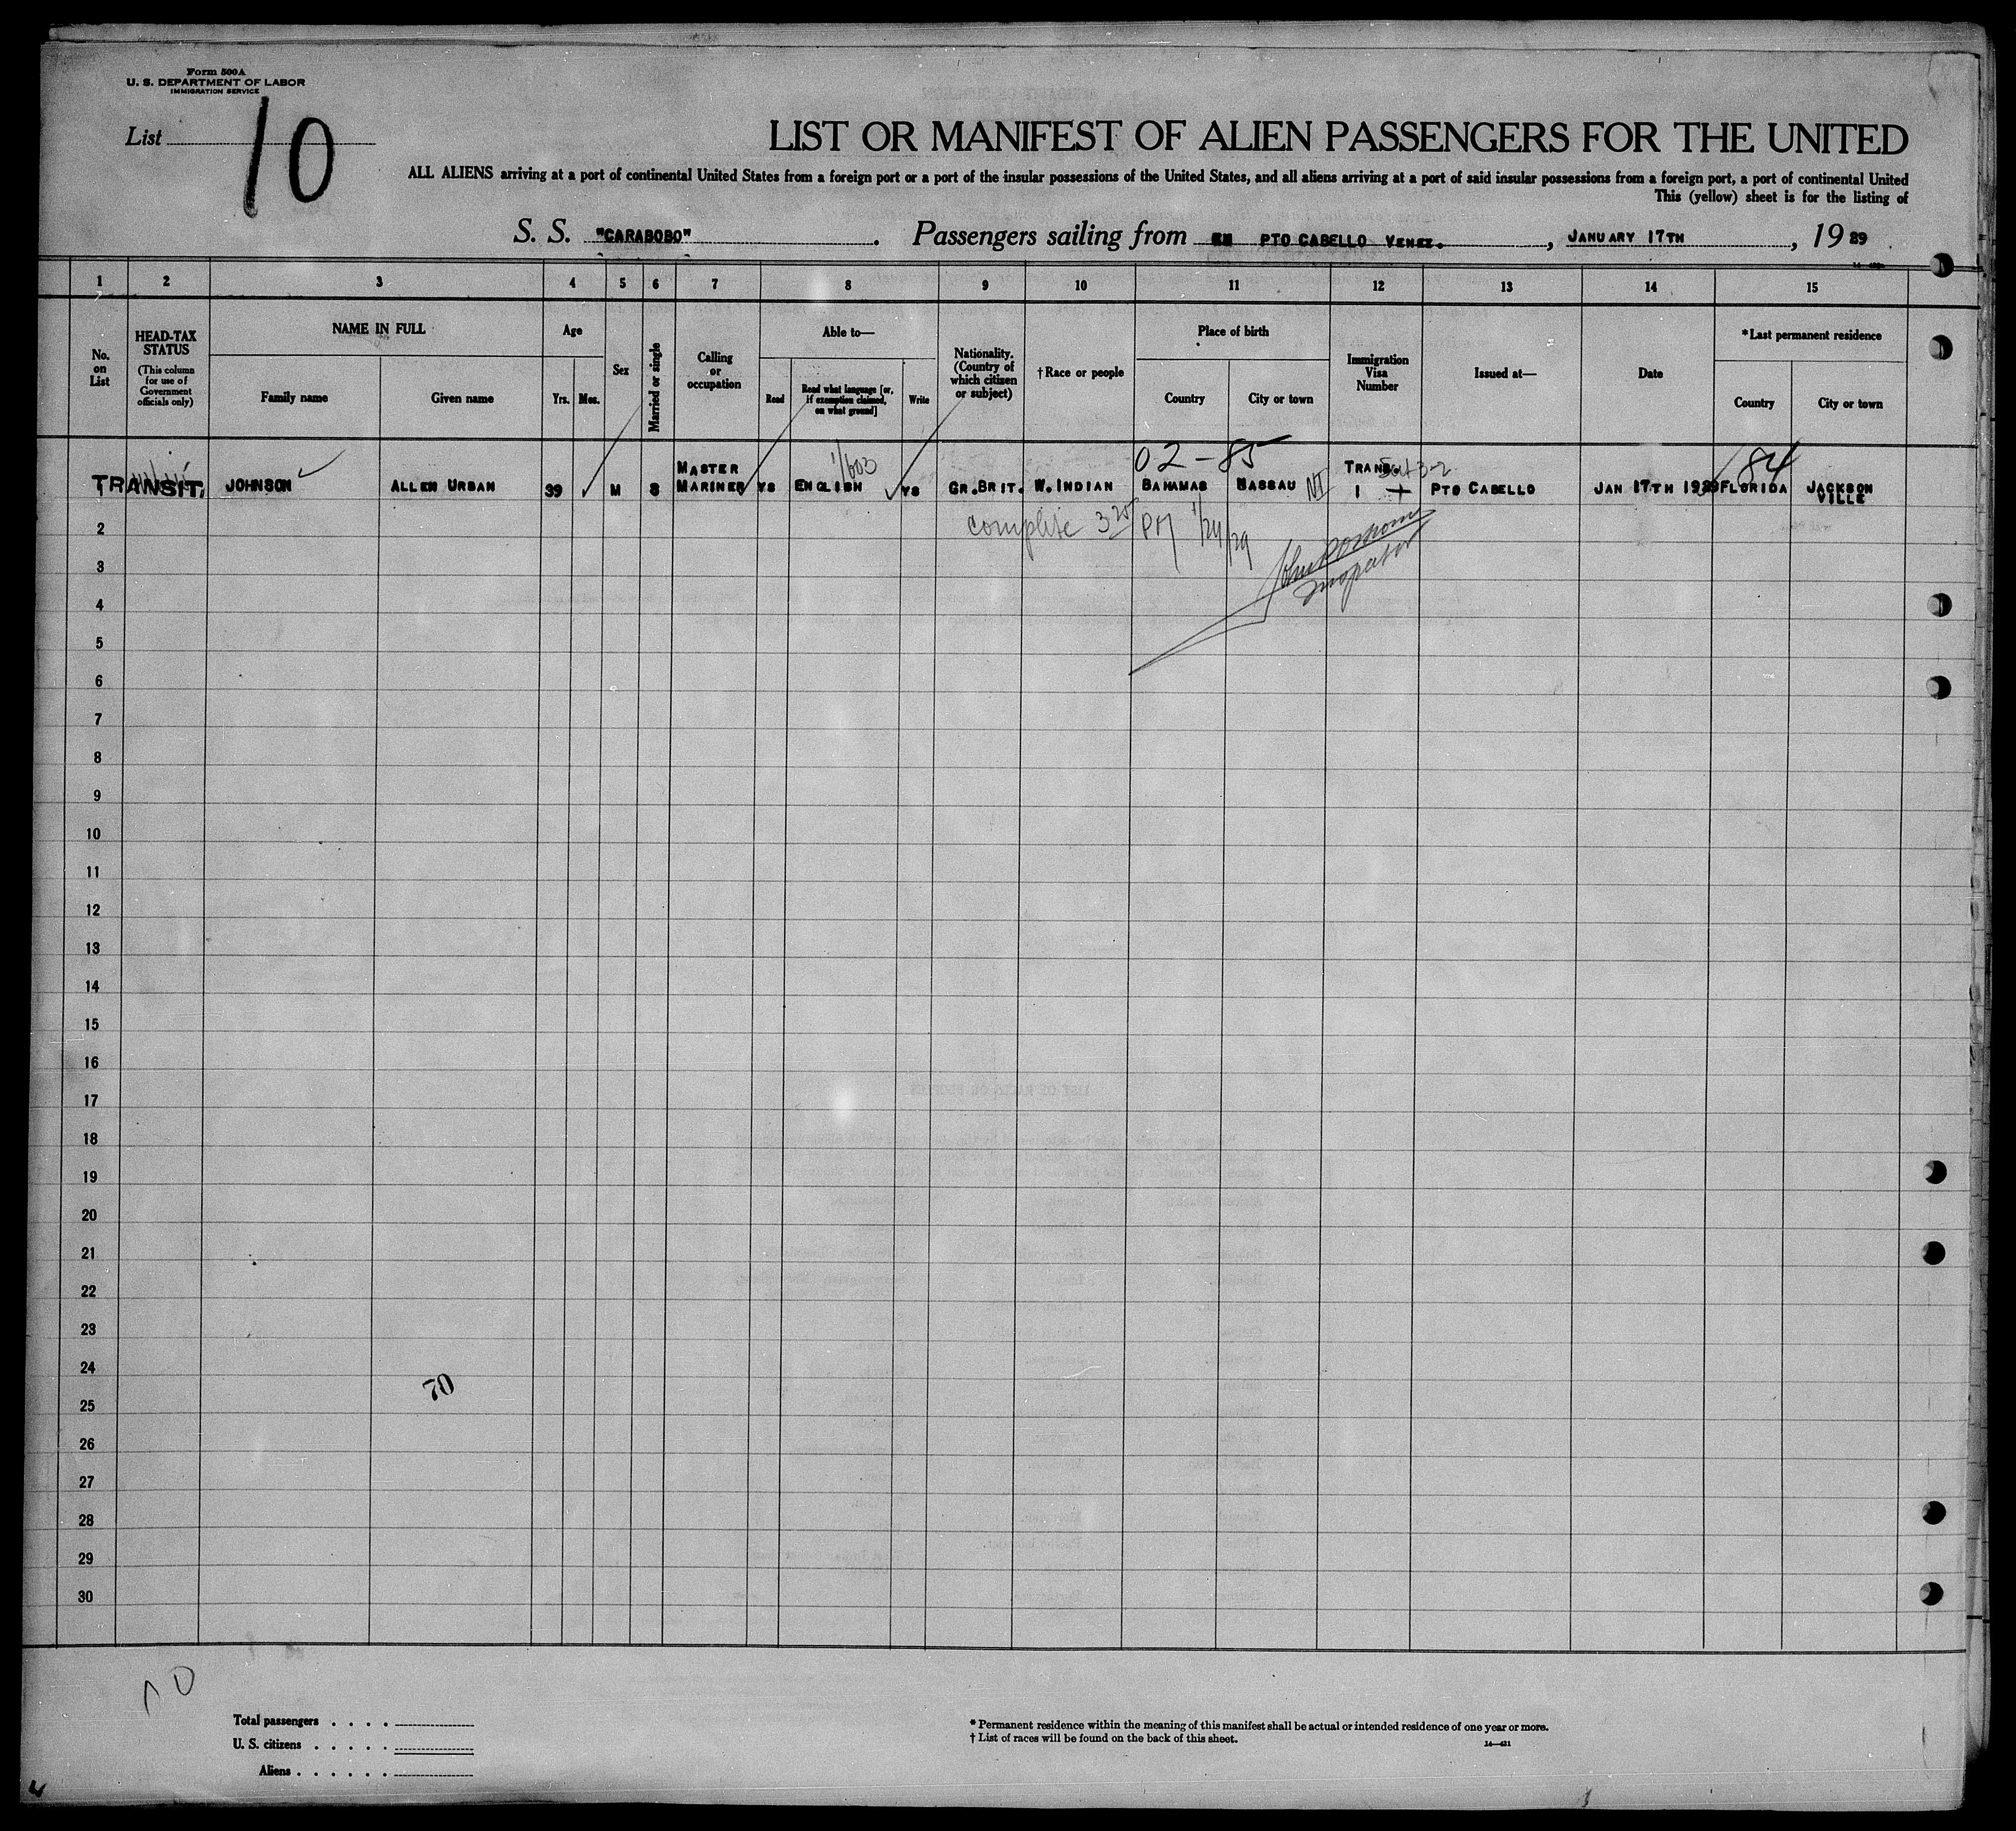 Form 500A
U. S. DEPARTMENT OF LABOR
IMMIGRATION SERVICE
List 10
LIST OR MANIFEST OF ALIEN PASSENGERS FOR THE UNITED
ALL ALIENS arriving at a port of continental United States from a foreign port or a port of the insular possessions of the United States, and all aliens arriving at a port of said insular possessions from a foreign port, a port of continental United
This (yellow) sheet is for the listing of
S. S. "CARABOBO". Passengers sailing from PTO CABELLO VENEZ., JANUARY 17TH, 1929
1 2 3 4 5 6 7 8 9 10 11 12 13 14 15
No. on List
HEAD-TAX STATUS
(This column for use of Government officials only)
NAME IN FULL
Family name Given name
Age
Yrs. Mos.
Sex
Married or single
Calling or occupation
Able to—
Read Read what language [or, if exemption claimed, on what ground] Write
Nationality. (Country of which citizen or subject)
† Race or people
Place of birth
Country City or town
Immigration Visa Number
Issued at—
Date
* Last permanent residence
Country City or town
02-85 84
MASTER 1/603 TRANS.
TRANSIT. JOHNSON ALLEN URBAN 39 M S MARINER YS ENGLISH YS GR.BRIT. W.INDIAN BAHAMAS NASSAU 1 PTO CABELLO JAN 17TH 1929 FLORIDA JACKSON
VILLE
2 complete 3 25 PM 1/24/29
3 Inspector
4
5
6
7
8
9
10
11
12
13
14
15
16
17
18
19
20
21
22
23
24
70
25
26
27
28
29
30
10
Total passengers . . . .
U. S. citizens . . . . .
Aliens . . . . . .
* Permanent residence within the meaning of this manifest shall be actual or intended residence of one year or more.
† List of races will be found on the back of this sheet.
14—421